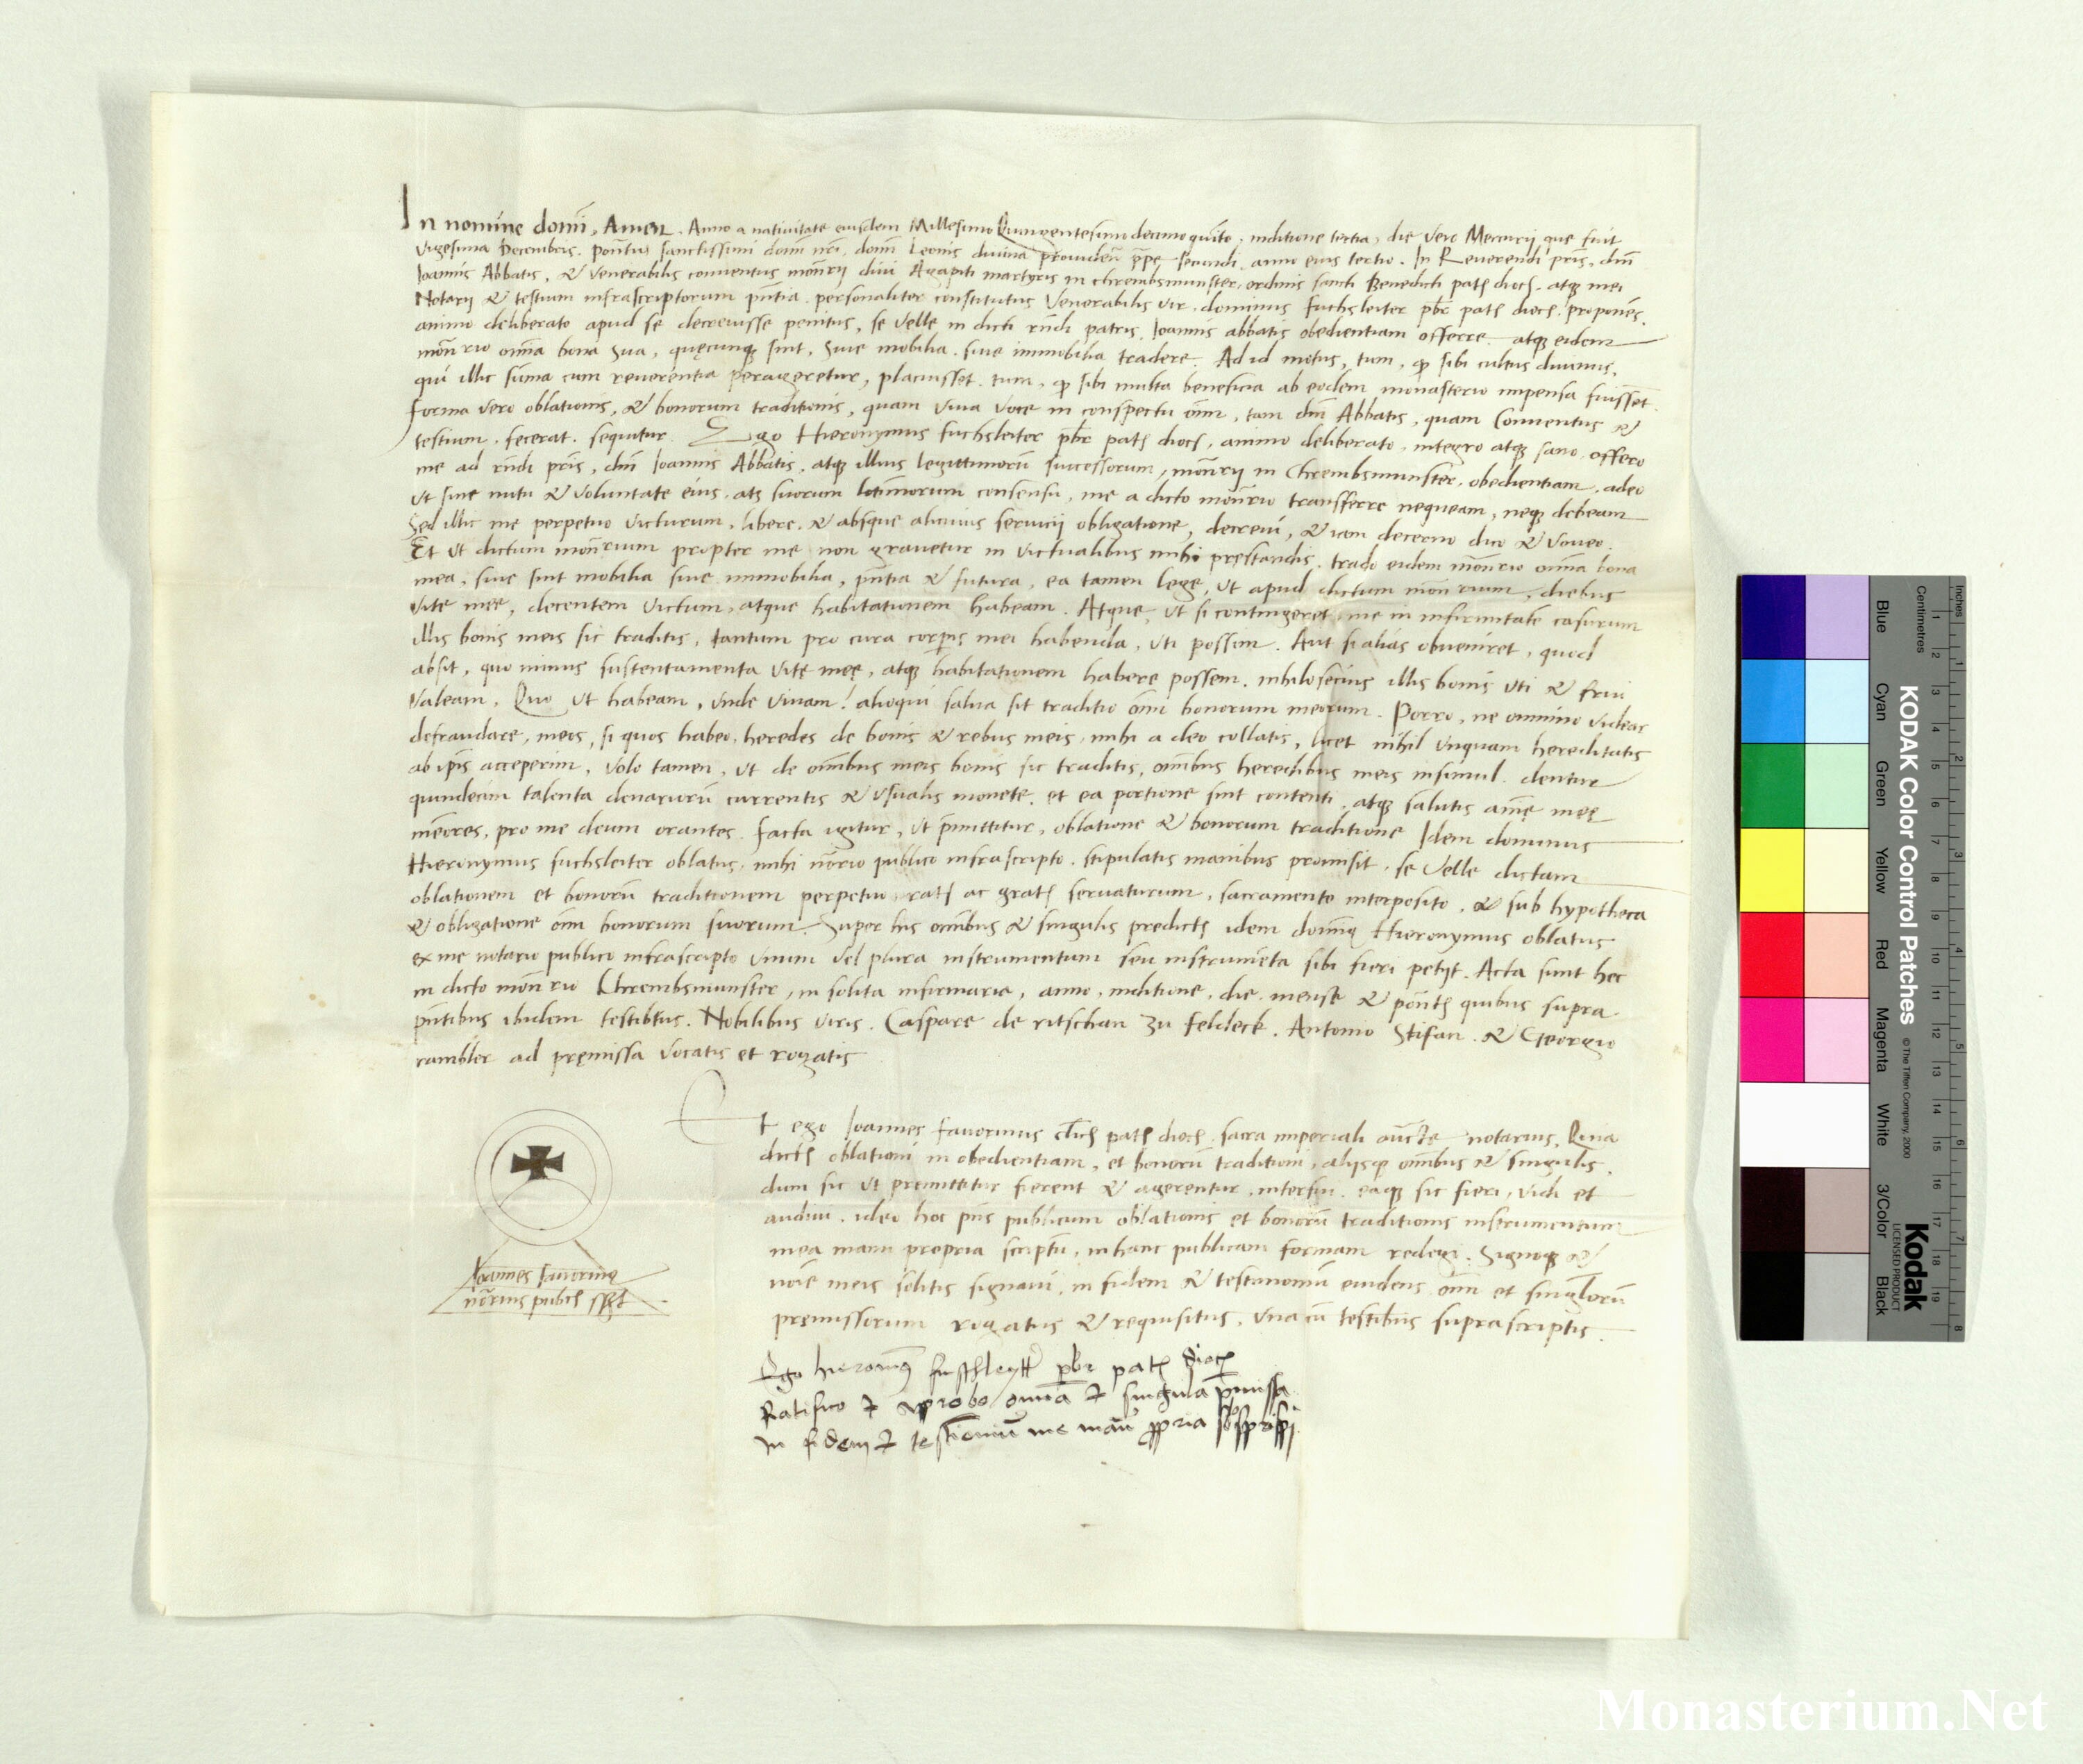 In nomine domĩ, Amen. Anno a nativitate eiusdem Millesimo Quingentesimo decimo quĩto, inditione tertia, die vero Mercurij que fuit
vigesima Decembris. Pontũs sanctissimi domĩ nr̃i, domĩ Leonis divina providen̄ p̄pe secundi, anno eius tertio. In Reverendi pr̃is, dñi
Ioannis Abbatis, & venerabilis conventus mon̄rij divi Agapiti martyris in chrembsmunster, ordinis sancti Benedicti patꝭ diocꝭ. atqꝫ mei
Notarij & testium infrascriptorum pn̄tia personaliter constitutus Venerabilis vir, dominus fuchsleiter pb̄r patꝭ diocꝭ. proponēs,
animo deliberato apud se decrevisse penitus, se velle in dicti rñdi patris Ioannis abbatis obedientiam offerre. atqꝫ eidem
mon̄rio om̄ia bona sua, quęcunqꝫ sint, sive mobilia sive immobilia tradere. Ad id motus, tum, qꝫ sibi cultus divinus,
qui illic sũma cum reverentia perageretur, placuisset. tum, qꝫ sibi multa beneficia ab eodem monasterio impensa fuissēt.
forma vero oblationis, & bonorum traditionis, quam viva voce in conspectu om̄i, tam dñi Abbatis, quam Conventus &
testium, fecerat, sequitur. Ego Hieronymus fuchsleiter pb̄r patꝭ diocꝭ, animo deliberato, integro atqꝫ sano, offero
me ad rñdi pr̃is, dñi Ioannis Abbatis, atqꝫ illius legittimorũ successorum, mon̄rij in Chrembsmunster, obedientiam, adeo
ut sine nutu & voluntate eius, atꝫ suorum l̃timorum consensu, me a dicto mon̄rio transferre nequeam, neqꝫ debeam
Sed illic me perpetuo victurum, libere, & absque alicuius servicij obligatione, decrevi, & iam decerno dico & voveo.
Et ut dictum mon̄rium propter me non gravetur in victualibus mihi pręstandis, trado eidem mon̄rio om̄ia bona
mea, sive sint mobilia sive immobilia, pn̄tia & futura, ea tamen lege, ut apud dictum mon̄rium, diebus
vite mee, decentem victum, atque habitationem habeam. Atque, ut si contingeret, me in infirmitatē casurum
illis bonis meis sic traditis, tantum pro cura corpis mei habenda, uti possem. Aut si alias obveniret, quod
absit, quo minus sustentamenta vitę meę, atqꝫ habitationem habere possem. nihilosecius illis bonis uti & frui
valeam. Quo ut habeam, unde vivam! alioqui salva sit traditio om̄i bonorum meorum. Porro, ne omnino videar
defraudare, meos, si quos habeo, heredes de bonis & rebus meis, mihi a deo collatis, licet nihil unquam hereditatis
ab ip̄is acceperim, volo tamen, ut de om̄ibus meis bonis sic traditis, om̄ibus heredibus meis insimul dentur
quindecim talenta denariorũ currentis & usualis monete. et ea portione sint contenti, atqꝫ salutis aīe meę
mēores, pro me deum orantes. facta igitur, ut p̄mittitur, oblatione & bonorum traditione Idem dominus
Hieronymus fuchsleiter oblatus, mihi nõrio publico infrascripto, stipulatis manibus promisit, se velle dictam
oblationem et bonorũ traditionem perpetuo ratꝭ ac gratꝭ servaturum, sacramento interposito, & sub hypotheca
& obligatione om̄i bonorum suorum. Super his om̄ibus & singulis predictꝭ idem dominꝰ Hieronymus oblatus
ex me notario publico infrascripto unum vel plura instrumentum seu instrumēta sibi fieri petijt. Acta sunt hec
in dicto mon̄rio Chrembsmunster, in solita infirmaria, anno, inditione, die, mense & pontꝭ quibus supra
pñtibus ibidem testibus. Nobilibus viris. Caspare de ritschan zu feldeck. Antonio Stifan. & Georgio
rambler ad pręmissa vocatis et rogatis
Et ego Ioannes favorinus cl̄icꝭ patꝭ diocꝭ. sacra imperiali auc̄te notarius. Quia
dictꝭ oblationi in obedientiam, et bonorũ traditioni, alijsqꝫ om̄ibus & singulis.
dum sic ut premittitur fierent & agerentur, interfui. eaqꝫ sic fieri, vidi et
audivi. ideo hoc pñs publicum oblationis et bonorũ traditionis instrumentum
mea manu propria scriptũ, in hanc publicam formam redegi. Signoqꝫ &
noīe meis solitis signavi, in fidem & testimoniũ evidens om̄i et singlorũ
premissorum rogatus & requisitus, una cũ testibus suprascriptis.
Ioannes favorinꝰ
nõrius publicꝭ sspt
Ego hieronimꝰ fuschleytt̃ pbr patꝭ diocꝭ
Ratifico et approbo omnia et singula p̄missa
in fidem et testimoniũ me manũ ꝓpria sbsscripsi
Monasterium.Net
Inches
Centimetres
Blue
Cyan
Green
Yellow
Red
Magenta
White
3/Color
Black
KODAK Color Control Patches
© The Tiffen Company, 2000
Kodak
LICENSED PRODUCT
1
2
3
4
5
6
7
8
9
10
11
12
13
14
15
16
17
18
19
1
2
3
4
5
6
7
8